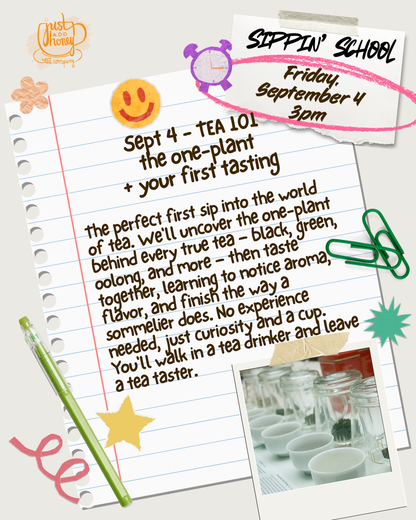 just
ADD
honey
tea company
SIPPIN' SCHOOL
Friday,
September 4
3pm
Sept 4 - TEA 101
the one-plant
+ your first tasting
The perfect first sip into the world
of tea. We'll uncover the one-plant
behind every true tea - black, green,
oolong, and more - then taste
together, learning to notice aroma,
flavor, and finish the way a
sommelier does. No experience
needed, just curiosity and a cup.
You'll walk in a tea drinker and leave
a tea taster.